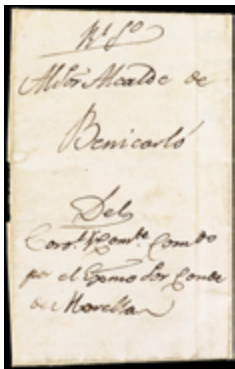 Rl So
Al Sor Alcalde de
Benicarló
Del
Coronl Comte Comdo
por el Exmo Sor Conde
de Morella